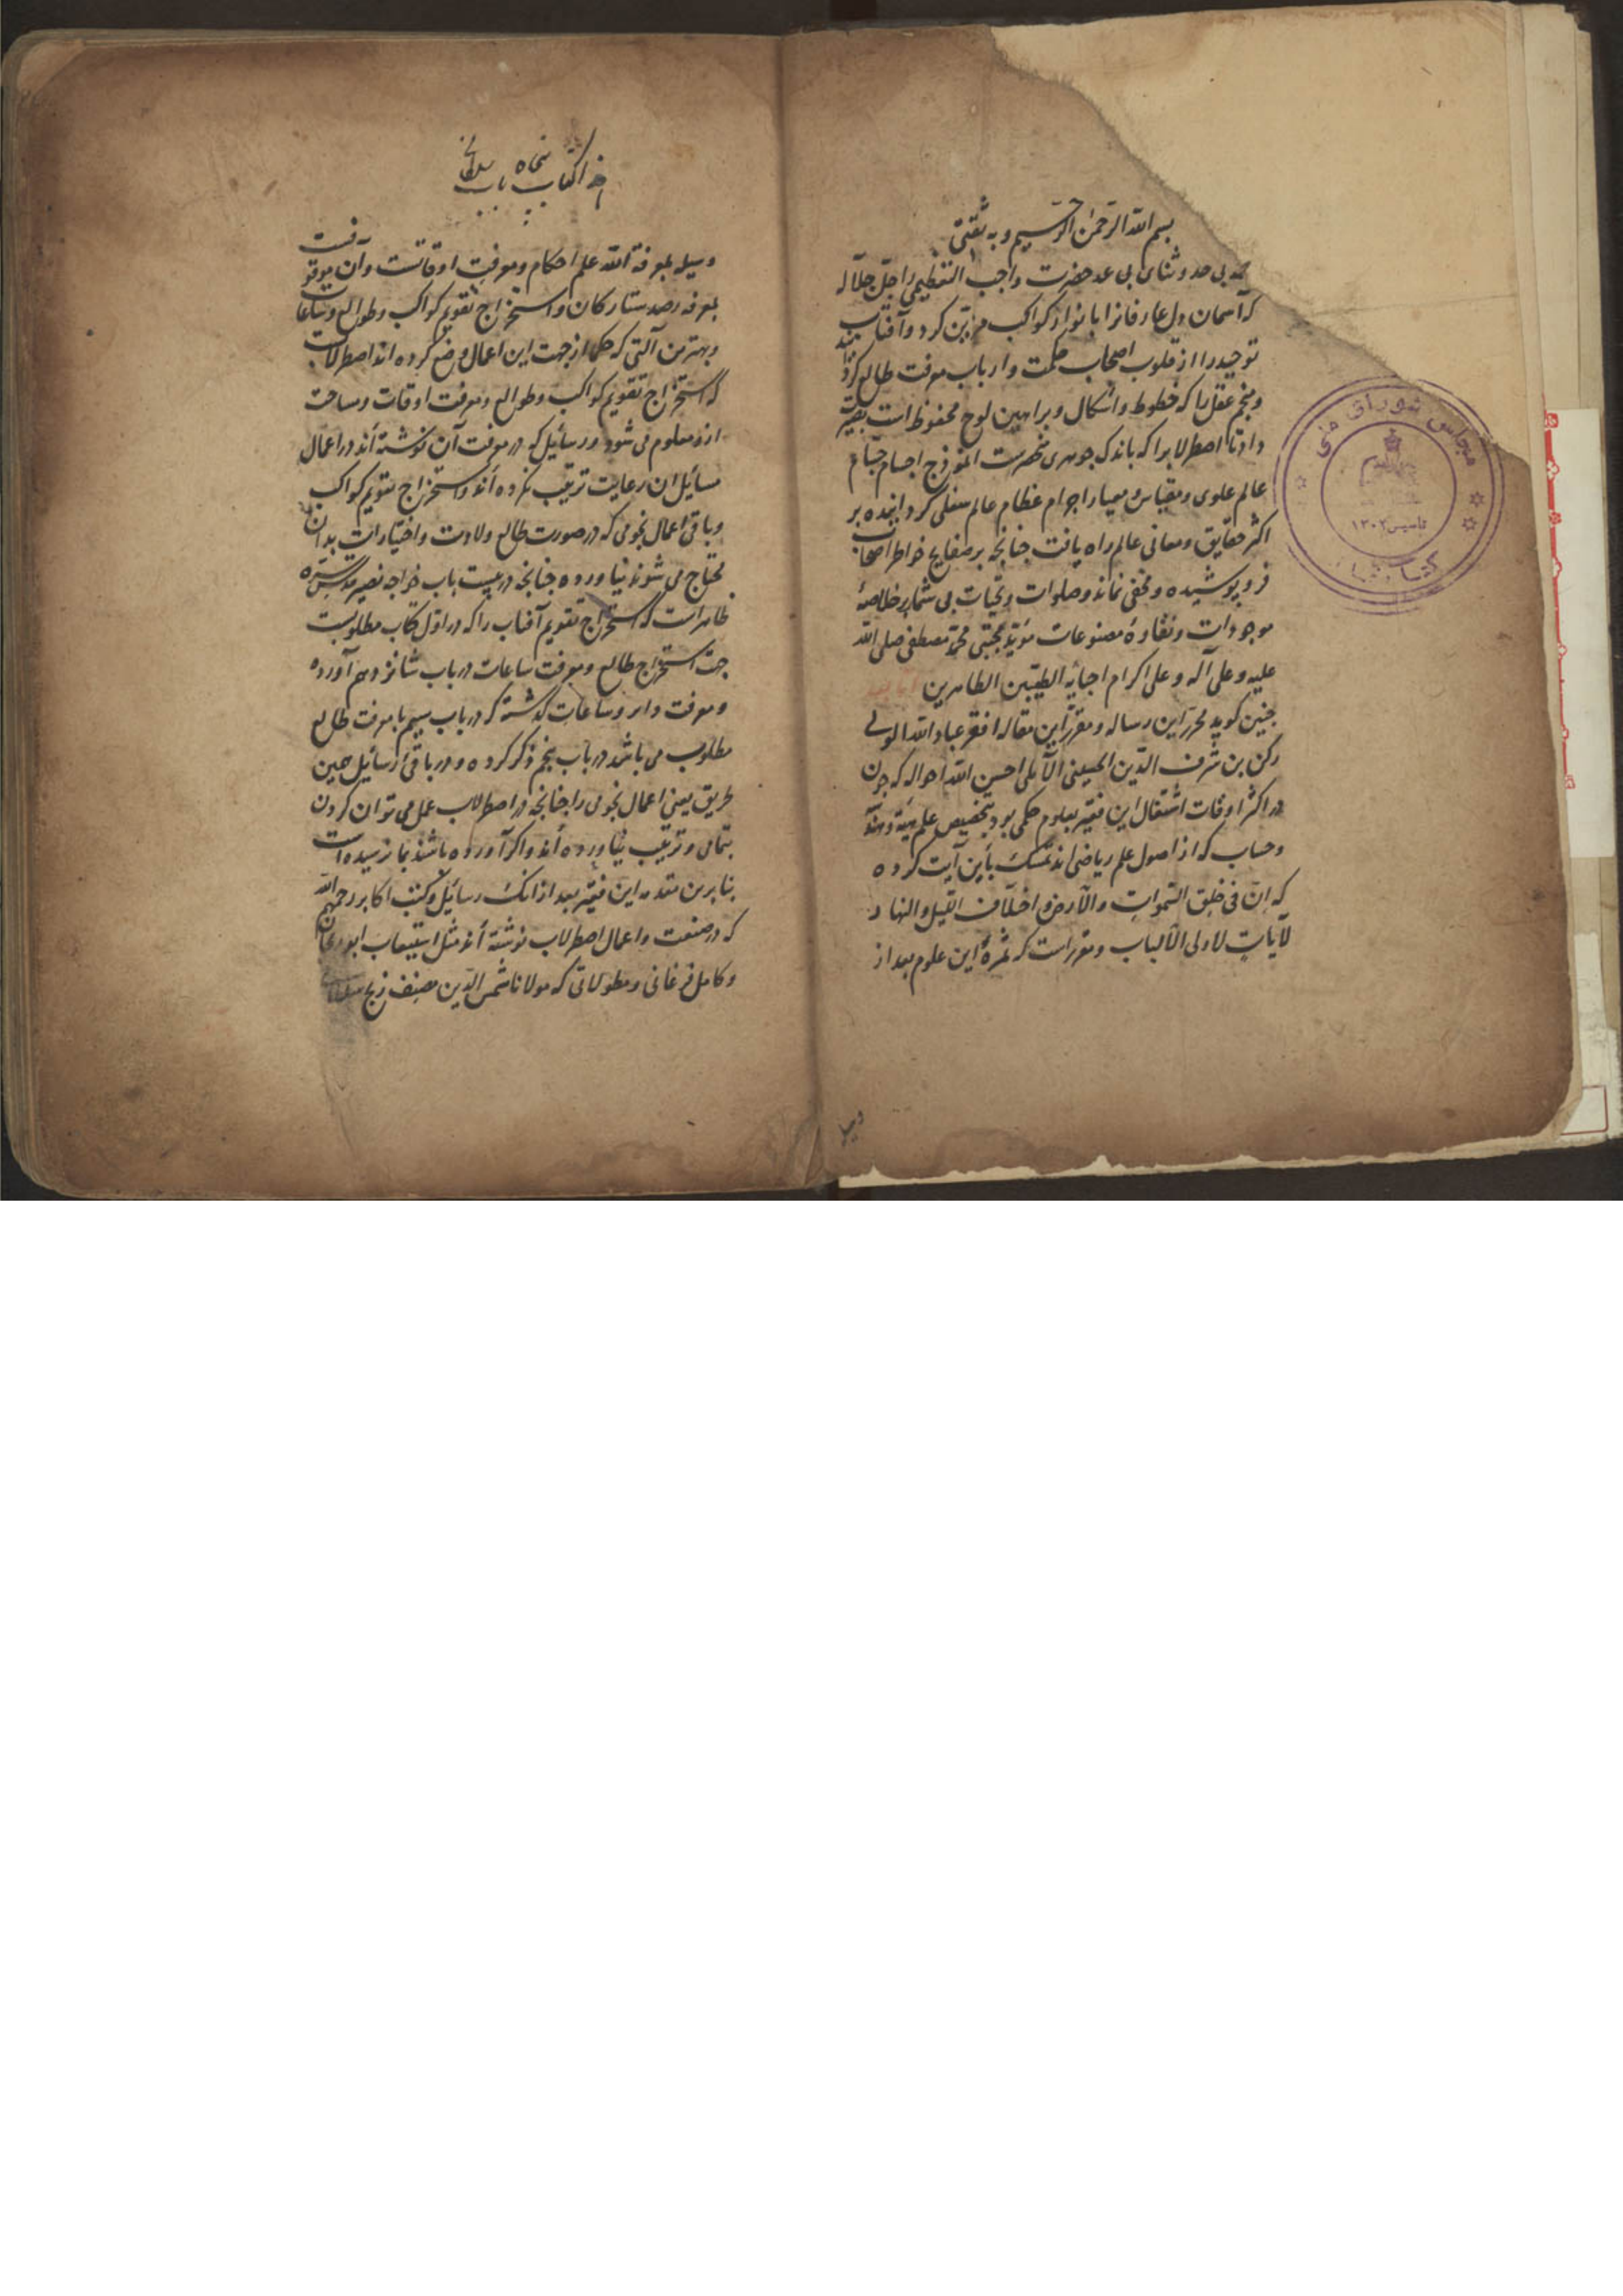 بسم الله الرحمن الرحیم و به ثقتی
حمد بی حد و ثنای بی عد حضرت واجب التعظیمی را جل جلاله
که آسمان دل عارفانرا بانوار کواکب مزین کرد و آفتاب
توحید را از قلوب اصحاب حکمت و ارباب معرفت طالع گردانید
و منجم عقل را که خطوط و اشکال و براهین لوح محفوظ است بصیرت
داد تا اصطرلاب را که باندک جوهری مختصرست انموذج اجسام
عالم علوی و مقیاس و معیار اجرام عظام عالم سفلی گردانیده بر
اکثر حقایق و معانی عالم راه یافت چنانچه بر صفایح خواطر اصحاب
فرو پوشیده و مخفی نماند و صلوات و تحیات بی شمار بر خلاصهٔ
موجودات و نقاوهٔ مصنوعات مؤید مجتبی محمد مصطفی صلی الله
علیه و علی آله و علی اکرام احبایه الطیبین الطاهرین
چنین کوید محرر این رساله و مقرر این مقاله افقر عباد الله الولی
رکن بن شرف الدین الحسینی الآملی احسن الله احواله که چون
در اکثر اوقات اشتغال این فقیر بعلوم حکمی بود بتخصیص علم هیئة و هندسه
و حساب که از اصول علم ریاضی اند تمسک بأین آیت کرده
که إنّ فی خلق السّموات والأرض و اختلاف اللیل والنهار
لآیات لاولی الألباب و مقرر است که ثمرهٔ این علوم بعد از
وسیله
هذا کتاب پنجاه باب سلطانی
وسیله بمعرفة الله علم احکام و معرفت اوقاتست و آن موقوفست
بمعرفه رصد ستارکان و استخراج تقویم کواکب و طوالع و ساعات
و بهترین آلتی که حکما از جهت این اعمال وضع کرده اند اصطرلابست
که استخراج تقویم کواکب و طوالع و معرفت اوقات و مساحت
ازو معلوم می شود و رسائیل که در معرفت آن نوشته أند در اعمال
مسائیل ان رعایت ترتیب نکرده أند و استخراج تقویم کواکب
و باقی اعمال نجومی که در صورت طالع ولادت و اختیارات بدان
محتاج می شوند نیاورده چنانچه در بیست باب خواجه نصیر قدس سره
ظاهر است که استخراج تقویم آفتاب را که در اول کتاب مطلوبست
جهت استخراج طالع و معرفت ساعات در باب شانزدهم آورده
و معرفت دایر و ساعات کذشته که در باب سیم با معرفت طالع
مطلوب می باشد در باب پنجم ذکر کرده و در باقی رسائیل همین
طریق یعنی اعمال نجومی را چنانچه در اصطرلاب عمل می توان کردن
بتمامی و ترتیب نیاورده أند و اکر آورده باشند بما نرسیده است
بنابرین مقدمه این فقیر بعد از انک رسائیل و کتب اکابر رحمهم الله
که در صنعت و اعمال اصطرلاب نوشته أند مثل استیعاب ابوریحان
و کامل فرغانی و مطولاتی که مولانا شمس الدین مصنف زیج
مجلس شورای ملی
تاسیس ۱۳۰۲
کتابخانه